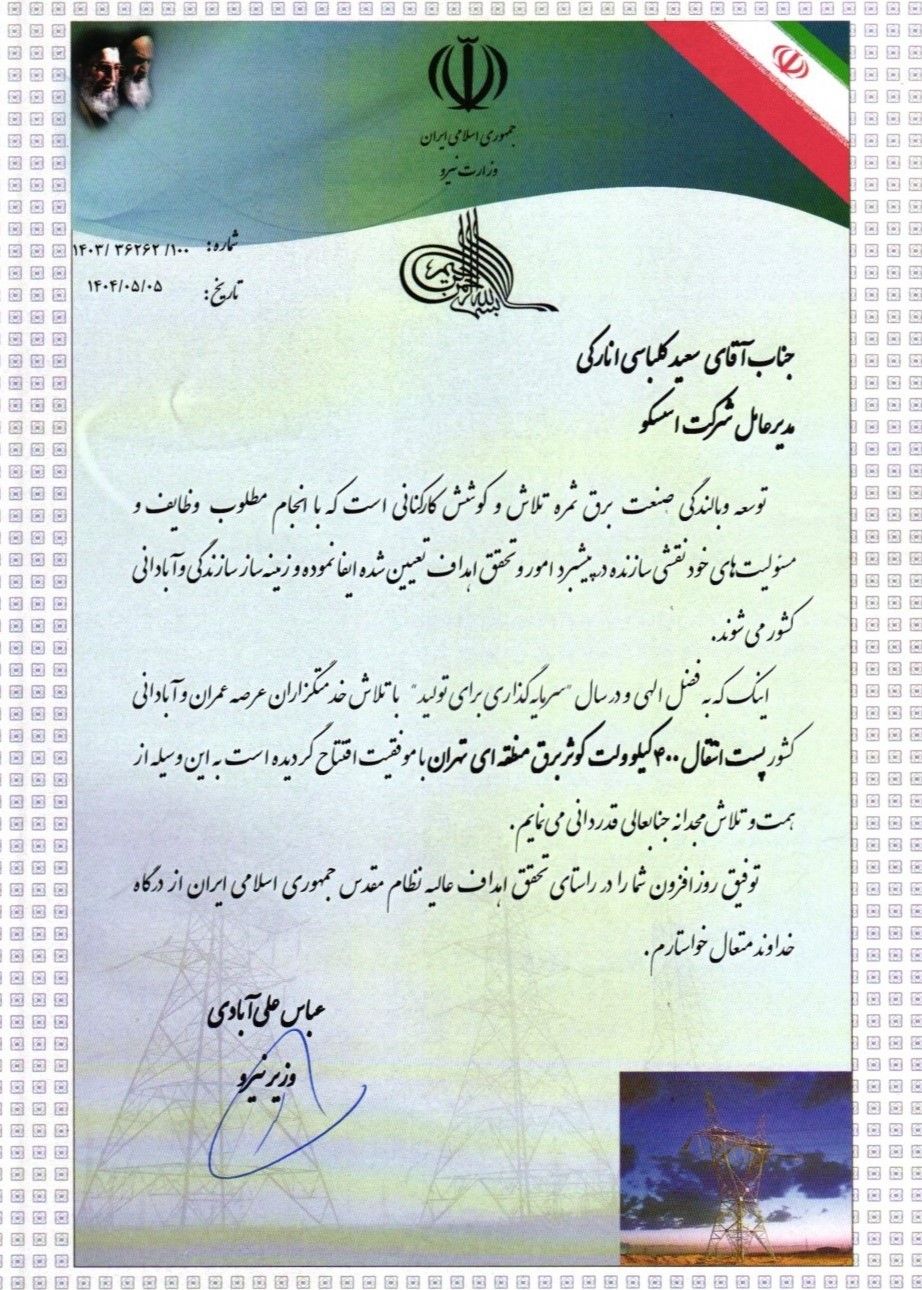 جمهوری اسلامی ایران
وزارت نیرو
بسم الله الرحمن الرحیم
شماره: ۱۰۰/ ۳۶۲۶۲ /۱۴۰۳
تاریخ: ۱۴۰۴/۰۵/۰۵
جناب آقای سعید کلباسی انارکی
مدیرعامل شرکت اسسکو
توسعه وبالندگی صنعت برق ثمره تلاش و کوشش کارکنانی است که با انجام مطلوب وظایف و
مسئولیت‌های خود نقشی سازنده در پیشبرد امور و تحقق اهداف تعیین شده ایفا نموده و زمینه ساز سازندگی و آبادانی
کشور می شوند.
اینک که به فضل الهی و در سال "سرمایه گذاری برای تولید" با تلاش خدمتگزاران عرصه عمران و آبادانی
کشور پست انتقال ۴۰۰ کیلوولت کوثر برق منطقه ای تهران با موفقیت افتتاح گردیده است به این وسیله از
همت و تلاش مجدانه جنابعالی قدردانی می نمایم.
توفیق روزافزون شما را در راستای تحقق اهداف عالیه نظام مقدس جمهوری اسلامی ایران از درگاه
خداوند متعال خواستارم.
عباس علی آبادی
وزیر نیرو